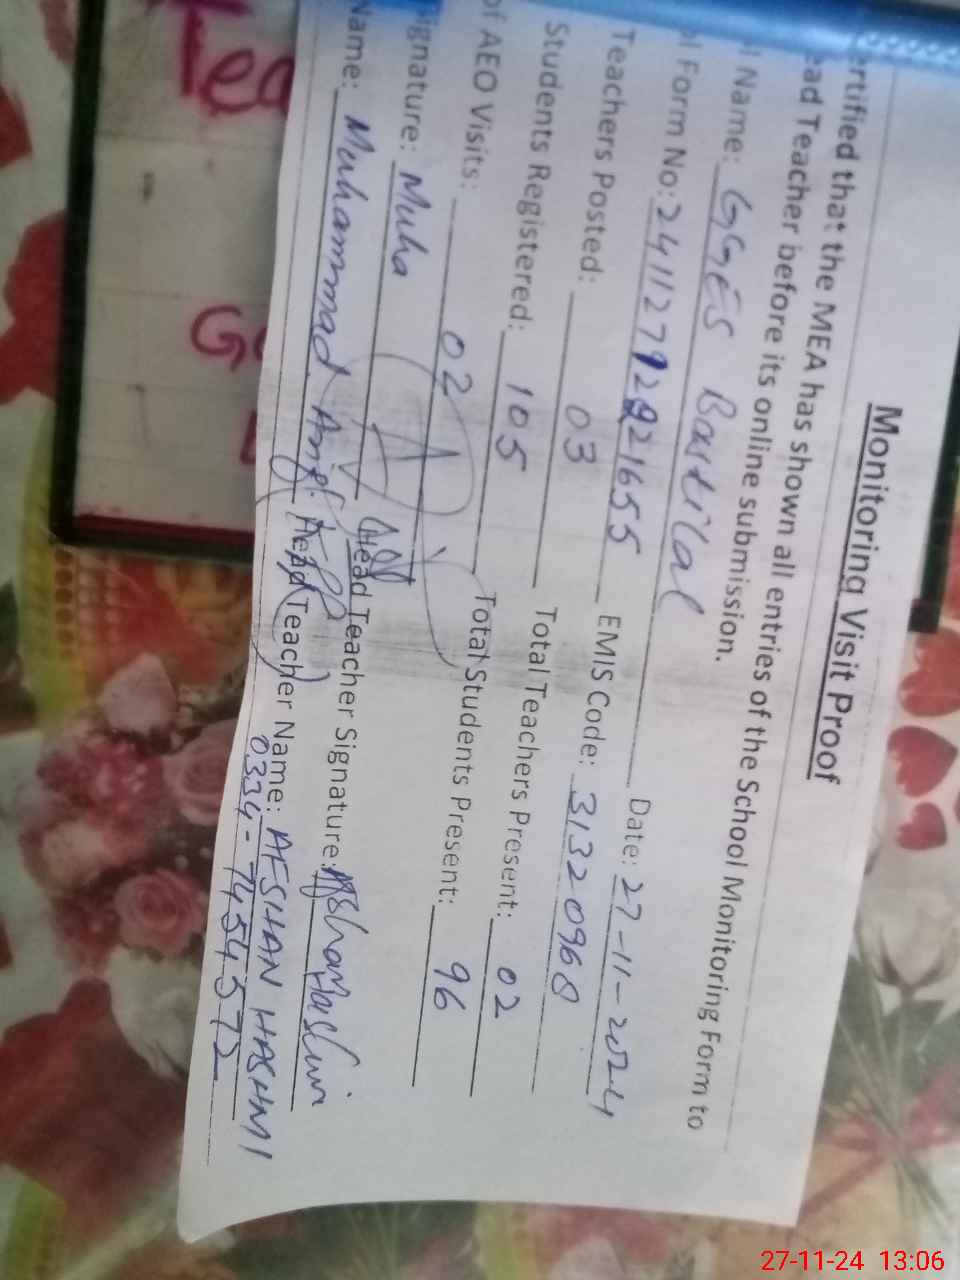 Monitoring Visit Proof
ertified that the MEA has shown all entries of the School Monitoring Form to
ead Teacher before its online submission.
l Name: GGES Basti lal Date: 27-11-2024
ol Form No: 24112792921655 EMIS Code: 31320968
Teachers Posted: 03 Total Teachers Present: 02
Students Registered: 105 Total Students Present: 96
of AEO Visits: 02
ignature: Muha Head Teacher Signature:
Name: Muhammad Head Teacher Name: AFSHAN HASHMI
0334-7454372
Tea
G
27-11-24 13:06